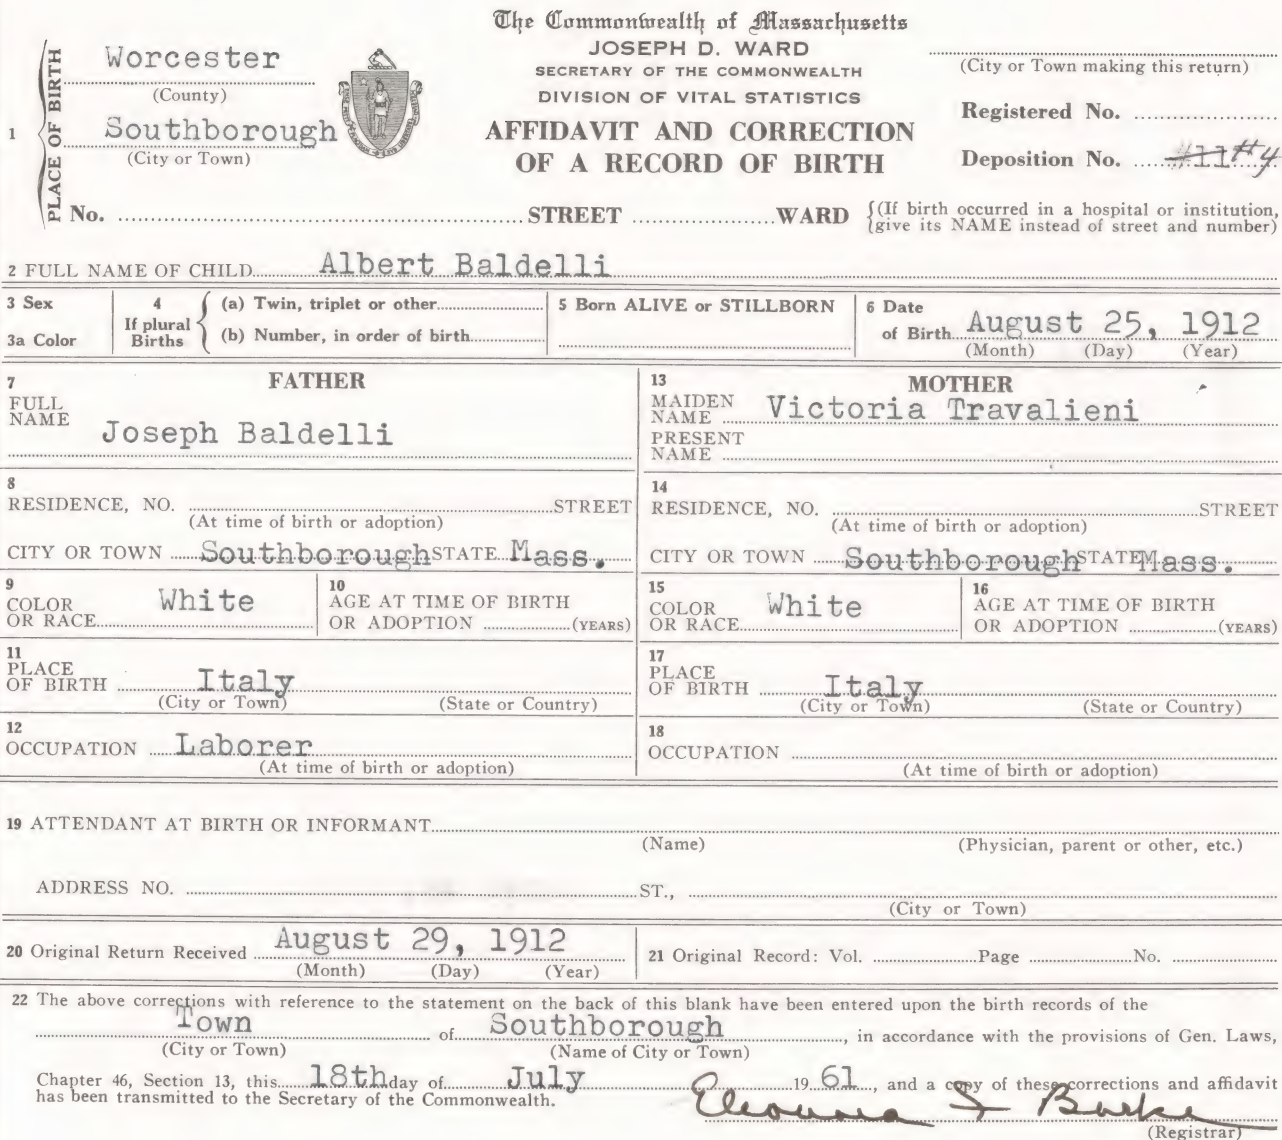 The Commonwealth of Massachusetts
JOSEPH D. WARD
SECRETARY OF THE COMMONWEALTH
DIVISION OF VITAL STATISTICS
AFFIDAVIT AND CORRECTION
OF A RECORD OF BIRTH
1 PLACE OF BIRTH
Worcester
(County)
Southborough
(City or Town)
(City or Town making this return)
Registered No.
Deposition No. #11 #4
No. STREET WARD {(If birth occurred in a hospital or institution,
give its NAME instead of street and number)
2 FULL NAME OF CHILD Albert Baldelli
3 Sex
3a Color
4 If plural Births
(a) Twin, triplet or other
(b) Number, in order of birth
5 Born ALIVE or STILLBORN
6 Date
of Birth August 25, 1912
(Month) (Day) (Year)
FATHER
7 FULL NAME
Joseph Baldelli
8
RESIDENCE, NO. STREET
(At time of birth or adoption)
CITY OR TOWN Southborough STATE Mass.
9 COLOR OR RACE White
10 AGE AT TIME OF BIRTH
OR ADOPTION (YEARS)
11 PLACE OF BIRTH Italy
(City or Town) (State or Country)
12
OCCUPATION Laborer
(At time of birth or adoption)
MOTHER
13 MAIDEN NAME Victoria Travalieni
PRESENT NAME
14
RESIDENCE, NO. STREET
(At time of birth or adoption)
CITY OR TOWN Southborough STATE Mass.
15 COLOR OR RACE White
16 AGE AT TIME OF BIRTH
OR ADOPTION (YEARS)
17 PLACE OF BIRTH Italy
(City or Town) (State or Country)
18
OCCUPATION
(At time of birth or adoption)
19 ATTENDANT AT BIRTH OR INFORMANT
(Name) (Physician, parent or other, etc.)
ADDRESS NO. ST.,
(City or Town)
20 Original Return Received August 29, 1912
(Month) (Day) (Year)
21 Original Record: Vol. Page No.
22 The above corrections with reference to the statement on the back of this blank have been entered upon the birth records of the
Town of Southborough, in accordance with the provisions of Gen. Laws,
(City or Town) (Name of City or Town)
Chapter 46, Section 13, this 18th day of July 19 61, and a copy of these corrections and affidavit
has been transmitted to the Secretary of the Commonwealth.
Eleonora F Burke
(Registrar)